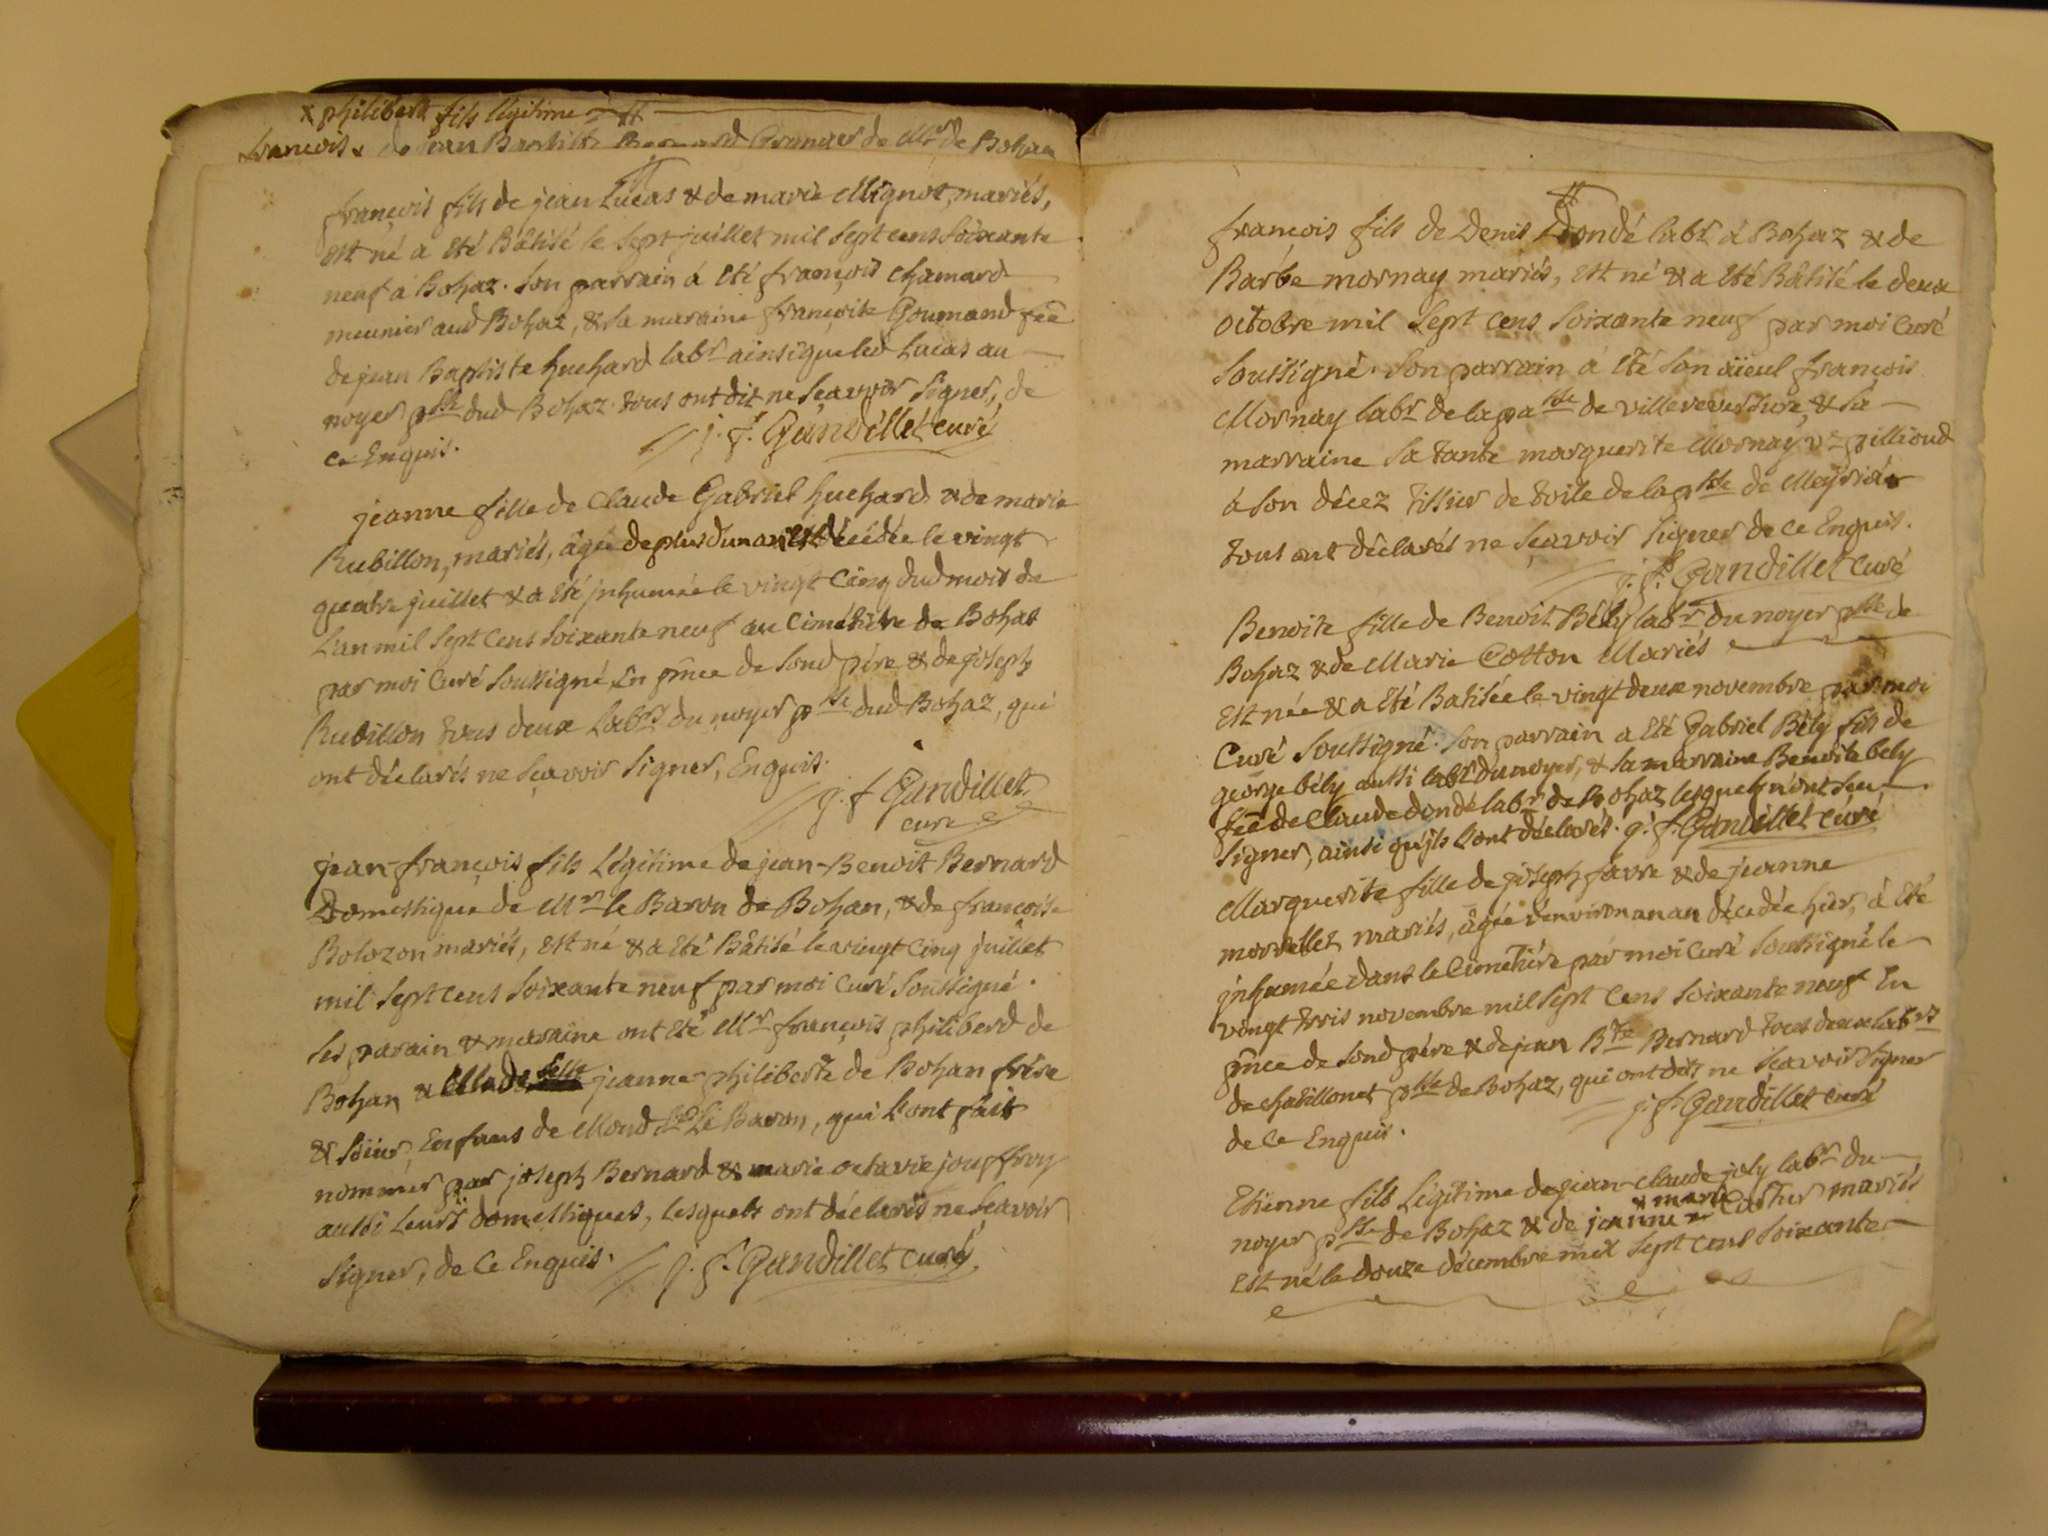 x philibert fils légitime
françois x de jean Baptiste Bernard Granger de Mr de Bohan
françois fils de jean Lucas & de marie Mignot, mariés,
est né a été Bâtisé le sept juillet mil sept cens soixante
neuf à Bohaz. son parrain à été françois chamard
meunier aud Bohaz, & sa maraine françoise Goumand fẽe
de jean Baptiste huchard labr ainsi que led Lucas au
noyer psse dud Bohaz. tous ont dit ne sçavoir signer, de
ce Enquis. j. f. Gandillet curé
jeanne fille de Claude Gabriel huchard & de marie
Rubillon, mariés, âgée de plus d'un an est décédée le vingt
quatre juillet & a été jnhumée le vingt cinq dud mois de
L'an mil sept cens soixante neuf au cimétière de Bohas
par moi Curé soussigné En pñce de sond pére & de joseph
Rubillon tous deux Labrs du noyer psse dud Bohaz, qui
ont déclarés ne sçavoir signer, Enquis.
j. f Gandillet
curé
jean-françois fils Légitime de jean-Benoit Bernard
Domestique de Mr le Baron de Bohan, & de françoise
Bolozon mariés, est né & a été Bâtisé le vingt cinq juillet
mil sept cens soixante neuf par moi Curé soussigné.
ses parain & maraine ont été Mr françois philiberd de
Bohan & Madeselle jeanne-philiberte de Bohan frère
& soeur, Enfans de Mond Sr Le Baron, qui L'ont fait
nommer par joseph Bernard & marie octavie jouffroy
aussi Leurs domestiques, Lesquels ont déclarés ne sçavoir
signer, de Ce Enquis. j. f. Gandillet curé
françois fils de Denis Dondé labr à Bohaz & de
Barbe mornay mariés, est né & a été Bâtisé le deux
octobre mil sept cens soixante neuf par moi Curé
soussigné. son parrain à été son aïeul françois
Mornay labr de la passe de villereversure, & sa
marraine sa tante marguerite Mornay ve pillioud
à son décez tissier de toile de la psse de Meyriat
tous ont déclarés ne sçavoir signer de ce Enquis.
j. f. Gandillet Curé
Benoite fille de Benoit Bély labr du noyer psse de
Bohaz & de Marie Cotton Mariés
Est née & a été Batisée le vingt deux novembre par moi
Curé soussigné. son parrain a été Gabriel Bély fils de
george bély aussi labr du noyer, & sa marraine Benoite bely
fẽe de Claude dondé labr de Bohaz lesquels n'ont sceu
signer, ainsi qu'jls L'ont déclarés. j. f. Gandillet curé
Marguerite fille de joseph favre & de jeanne
morrellet mariés, âgée d'environ un an décedée hier, à été
jnhumée dans le Cimétière par moi Curé soussigné le
vingt trois novembre mil sept cens soixante neuf En
pñce de sond pére & de jean Bte Bernard tous deux labrs
de chatillonet psse de Bohaz, qui ont dit ne sçavoir signer
de Ce Enquis. j. f. Gandillet curé
Etienne fils Légitime de jean-claude joly labr du
x marie
noyer psse de Bohaz & de jeanne x mariés
est né le douze décembre mil sept cens soixante